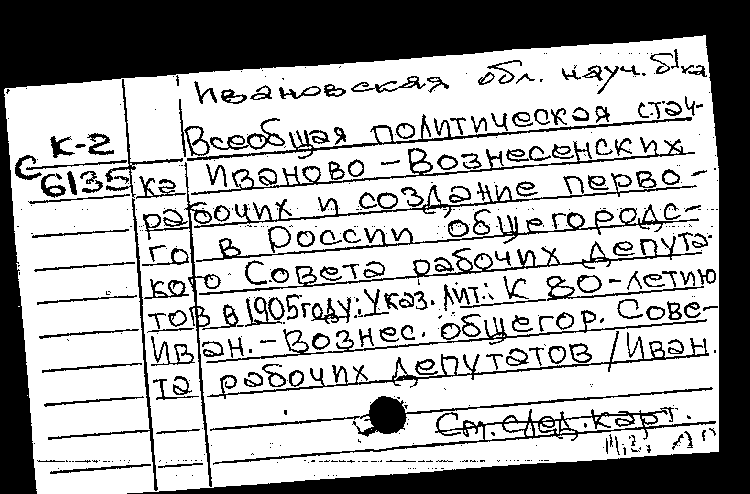 Ивановская обл. науч. б-ка
К-2
С 6135
Всеобщая политическая стач-
ка Иваново-Вознесенских
рабочих и создание перво-
го в России общегородс-
кого Совета рабочих депута-
тов в 1905 году: Указ. лит.: К 80-летию
Иван.-Вознес. общегор. Сове-
та рабочих депутатов / Иван.
См. след. карт.